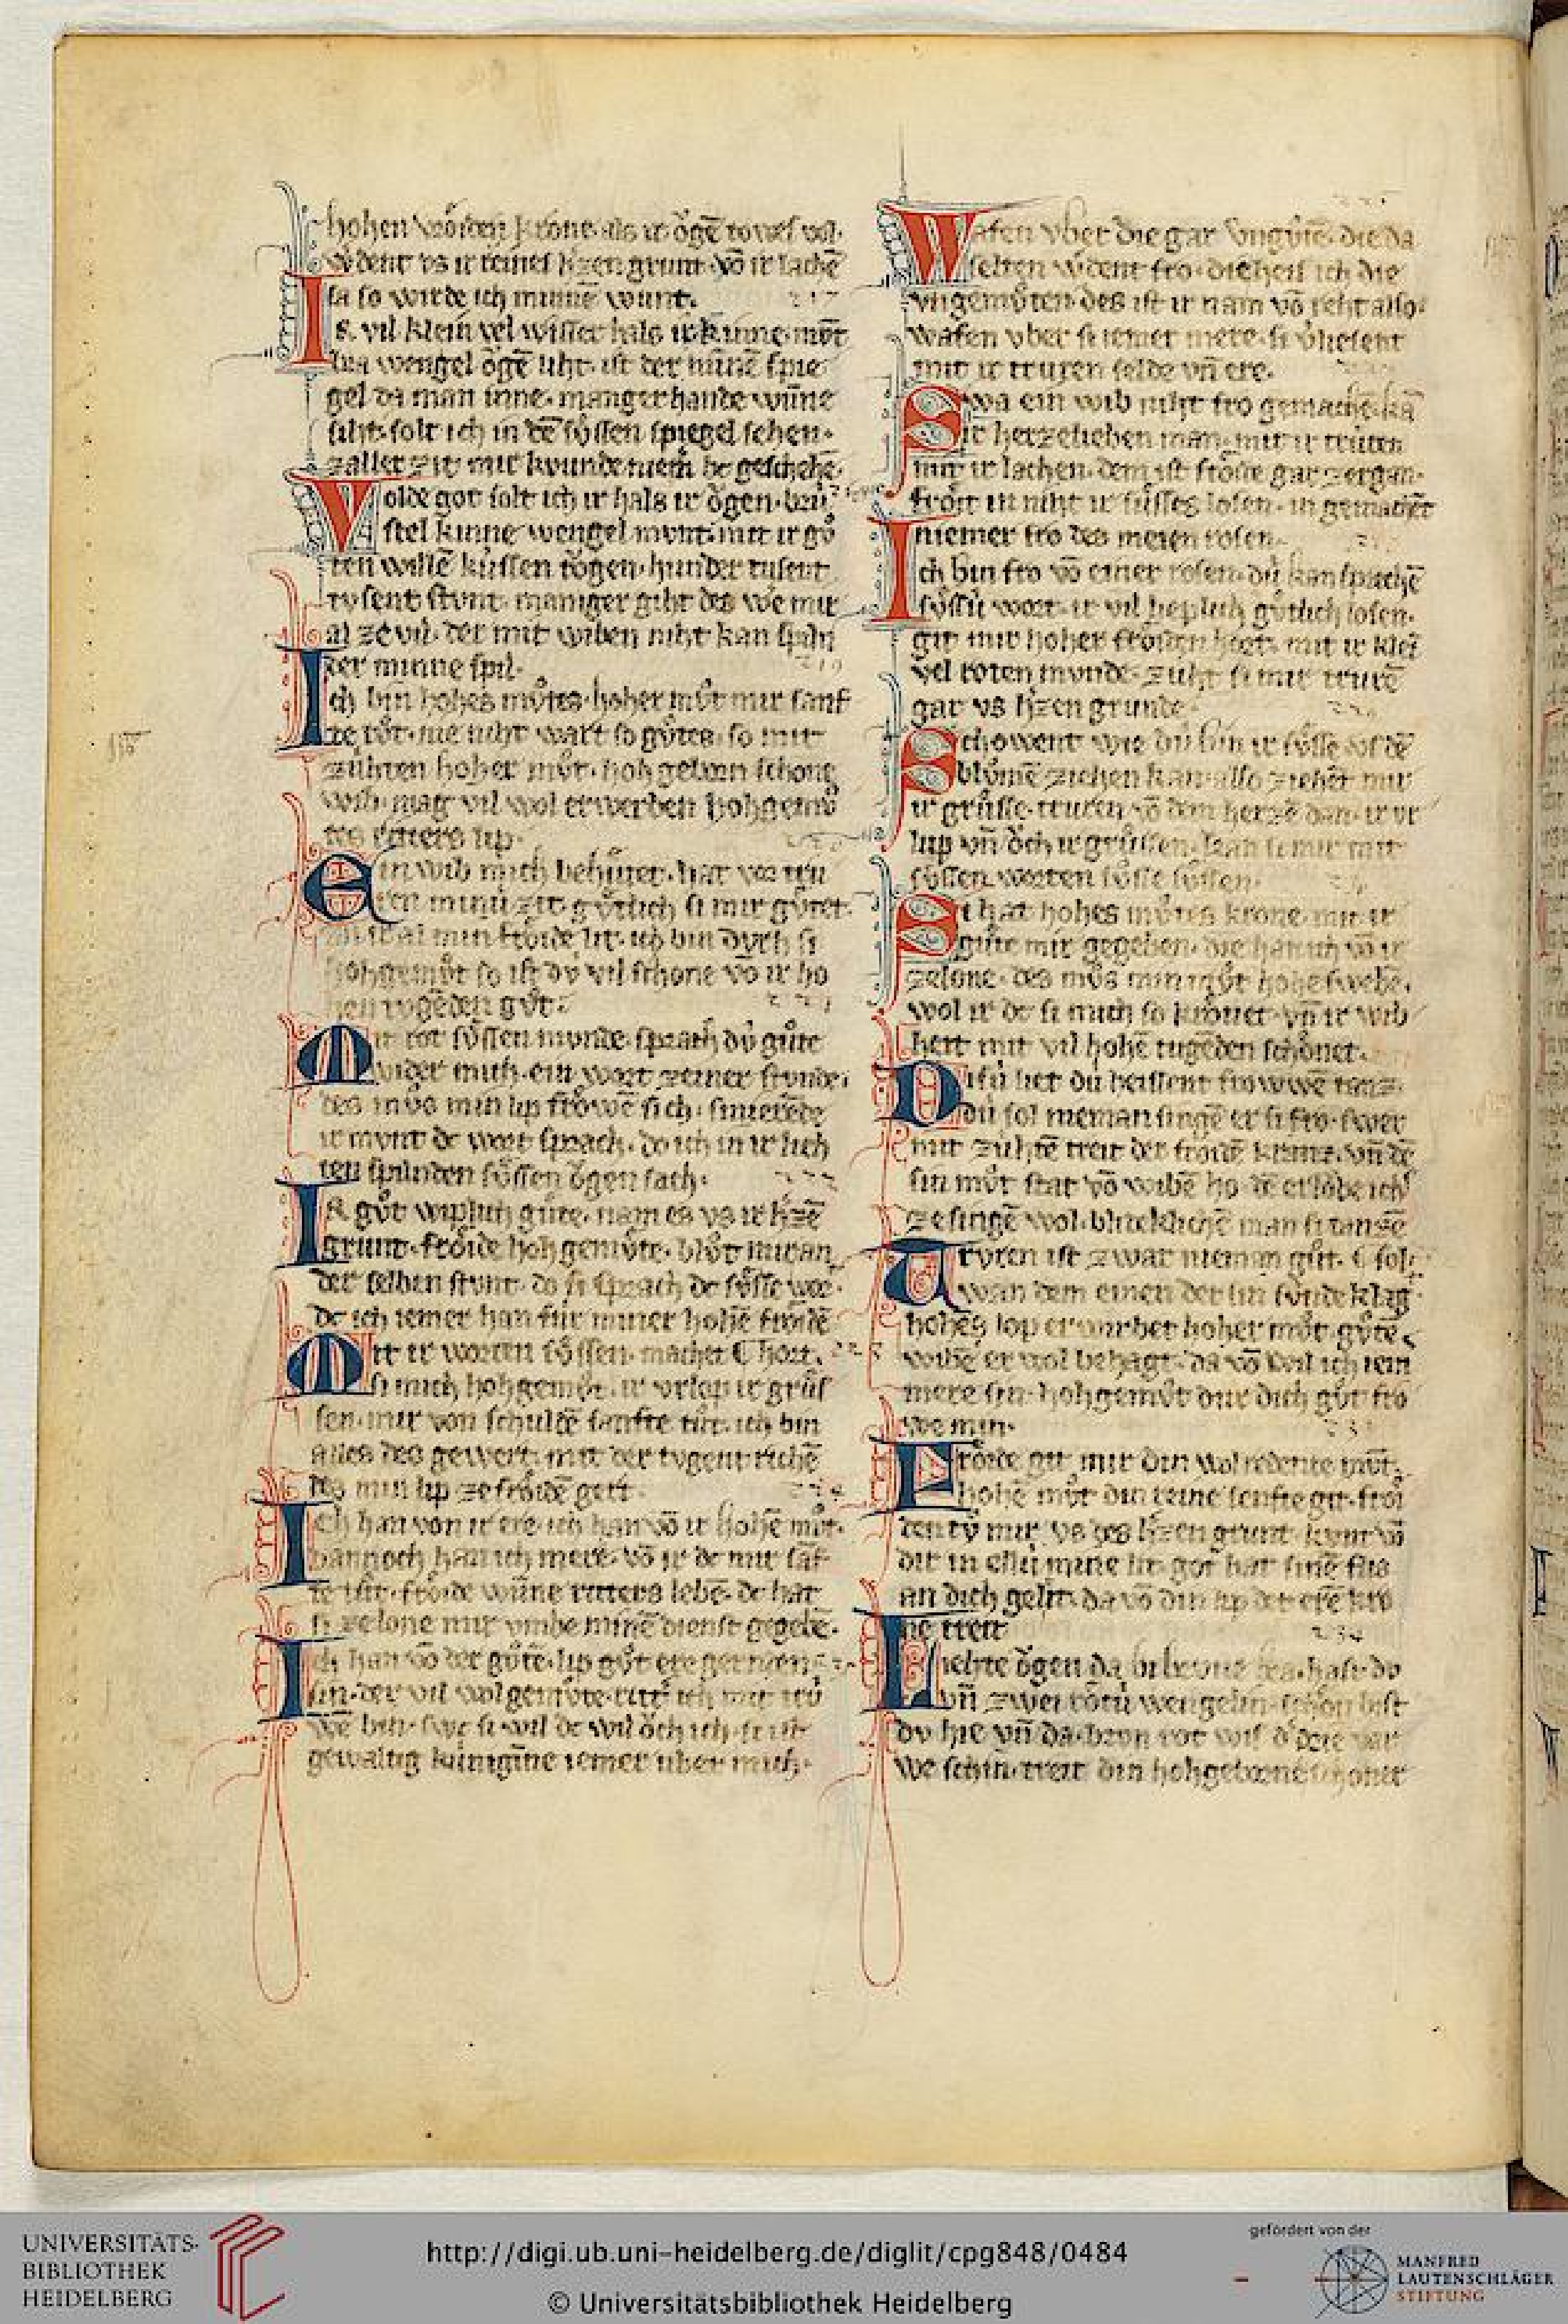 hohen wͦrden krone· als ir ǒgē towes vol·
ws ir reines h'zen grunt· vō ir lachē
sa so wirde ich minnē wunt.
Ir vil klein vel wisser hals ir kinne· mv̊t
wengel ǒgē liht· ist der minnē spie
gel da man inne· mangerhande wūne
siht· solt ich in dē sv̊ssen spiegel sehen·
zaller zit mir kunde niem̄ bc geschehē·
Wolde got solt ich ir hals ir ǒgen· brú
stel kinne wengel mvnt· mit ir gv̊
ten willē kússen tǒgen· hundert tusent
tvsent stvnt· maniger giht des we mir
al ze vil· der mit wiben niht kan spiln
der minne spil·
Ich bin hohes mv̊tes· hoher mv̊t mir sanf
te tv̊t· nie niht wart so gv̊tes· so mit
zúhten hoher mv̊t· hohgeborn schone
wib· mag vil wol erwerben hohgemv̊
tes ritters lip·
Ein wib mich behv̊tet· hat vor trú
ren minú zit· gv̊tlich si mir gv̊tet·
an ir al min frǒide lit· ich bin dvrh si
hohgemv̊t so ist dú vil schone vō ir ho
hen tvgēden gv̊t·
Mit rot sv̊ssen munde· sprach dú gv̊te
wider mich· ein wort zeiner stvnde·
des mv̊s min lip frǒwē sich· smierēde
ir mvnt dc wort sprach· do ich in ir lieh
ten spilnden sv̊ssen ǒgen sach·
Ir gv̊t wiplich gv̊te· nam es vs ir h'zē
grunt· frǒide hohgemv̊te· blv̊t mir an
der selben stvnt· do si sprach dc sv̊sse wort·
dc ich iemer han fúr miner hohē frǒidē
Mit ir worten sv̊ssen· machet ¶ hort·
si mich hohgemv̊t· ir vrlop ir grv̊s
sen· mir von schuldē sanfte tv̊t· ich bin
alles des gewert· mit der tvgentrichē
des min lip ze frǒidē gert·
Ich han von ir ere· ich han vō ir hohē mv̊t·
dannoch han ich mere· vō ir dc mir sāf
te tv̊t· frǒide wūne ritters lebē· dc hat
si ze lone mir vmbe minē dienst gegebē·
Ich han vō der gv̊tē· lip gv̊t ere
sin· der vil wolgemv̊te· ritt' ich mit trú
wē bin· swie si wil dc wil ǒch ich· si ist
gewaltig kúnigīne iemer uber mich·
Wafen vber die gar vngv̊tē· die da
selten w'dent fro· die heis ich die
vngemv̊ten· des ist ir nam vō reht also·
wafen vber si iemer mere· si v'liesent
mit ir truren selde vn̄ ere·
Swa ein wib niht fro gemachē kā
ir herzelieben man· mit ir trúten
mit ir lachen· dem ist frǒide gar zergan·
frǒit in niht ir sússes losen· in gemachet
niemer fro des meien rosen·
Ich bin fro vō einer rosen· dú kan sprechē
sv̊ssú wort· ir vil lieplich gv̊tlich losen·
git mir hoher frǒiden hort· mit ir klei
vel roten mvnde· zúht si mir trurē
gar vs h'zen grunde·
Schowent wie dú bin ir sv̊sse vs dē
blv̊mē ziehen kan· also ziehet mir
ir grv̊sse· truren vō dem herzē dan· ir vr
lup vn̄ ǒch ir grv̊ssen· kan si mir mit
sv̊ssen worten sv̊sse sv̊ssen·
Si hat hohes mv̊tes krone· mit ir
gv̊te mir gegeben· die han ich vō ir
ze lone· des mv̊s min mv̊t hohe swebē·
wol ir dc si mich so krǒnet· vn̄ ir wib
heit mit vil hohē tugēden schǒnet·
Disú liet dú heissent frowwē tanz·
dú sol nieman singē er si fro· swer
mit zúhtē treit der frǒidē kranz· vn̄ dē
sin mv̊t stat vō wibē ho· dē erlǒbe ich
ze singē wol· blideklichē man si tanzē
Trvren ist zwar nieman gv̊t· ¶ sol·
wan dem einen der sin súnde klag·
hohes lop erwirbet hoher mv̊t· gv̊tē
wibē er wol behagt· da vō wil ich iem
mere sin· hohgemv̊t dur dich gv̊t fro
we min·
Frǒide git mir din wolredente mv̊t·
hohē mv̊t din reine senfte git· frǒi
den tv̊ mir vs des h'zen grunt· kvmt vō
dir in ellú mine lit· got hat sinē flis
an dich geleit· da vō din lip der erē kro
ne treit·
Liehte ǒgen da bi brvne bra· hast du
vn̄ zwei rǒtú wengelin· schǒn bist
dv hie vn̄ da· brvn rot wis d' drie var
we schin· treit din hohgeborne schoner
UNIVERSITÄTS-
BIBLIOTHEK
HEIDELBERG
http://digi.ub.uni-heidelberg.de/diglit/cpg848/0484
© Universitätsbibliothek Heidelberg
gefördert von der
MANFRED
LAUTENSCHLÄGER
STIFTUNG